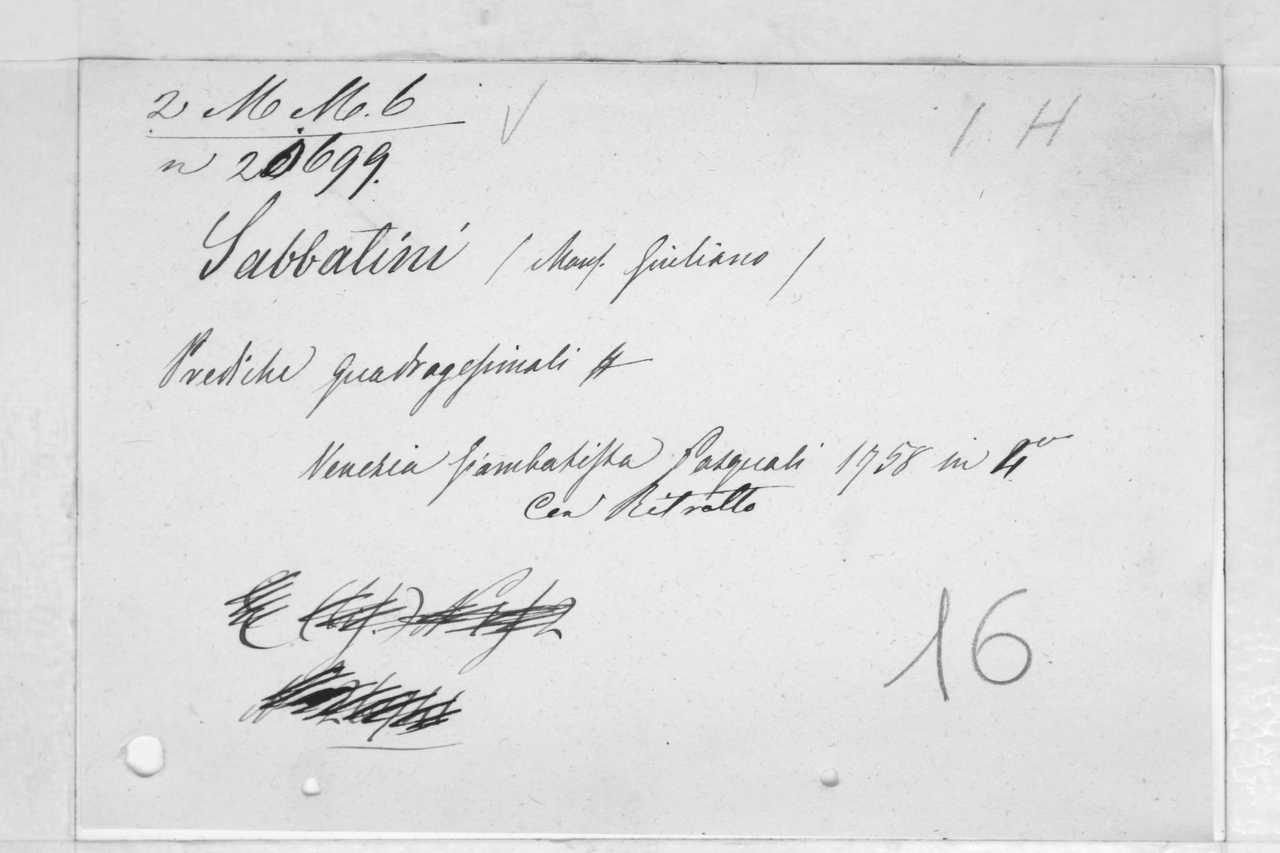 2 M. M. 6 V I. H
n 20699.
Sabbatini (Mons. Giuliano)
Prediche quadragesimali
Venezia Giambatista Pasquali 1758 in 4º
Con Ritratto
16